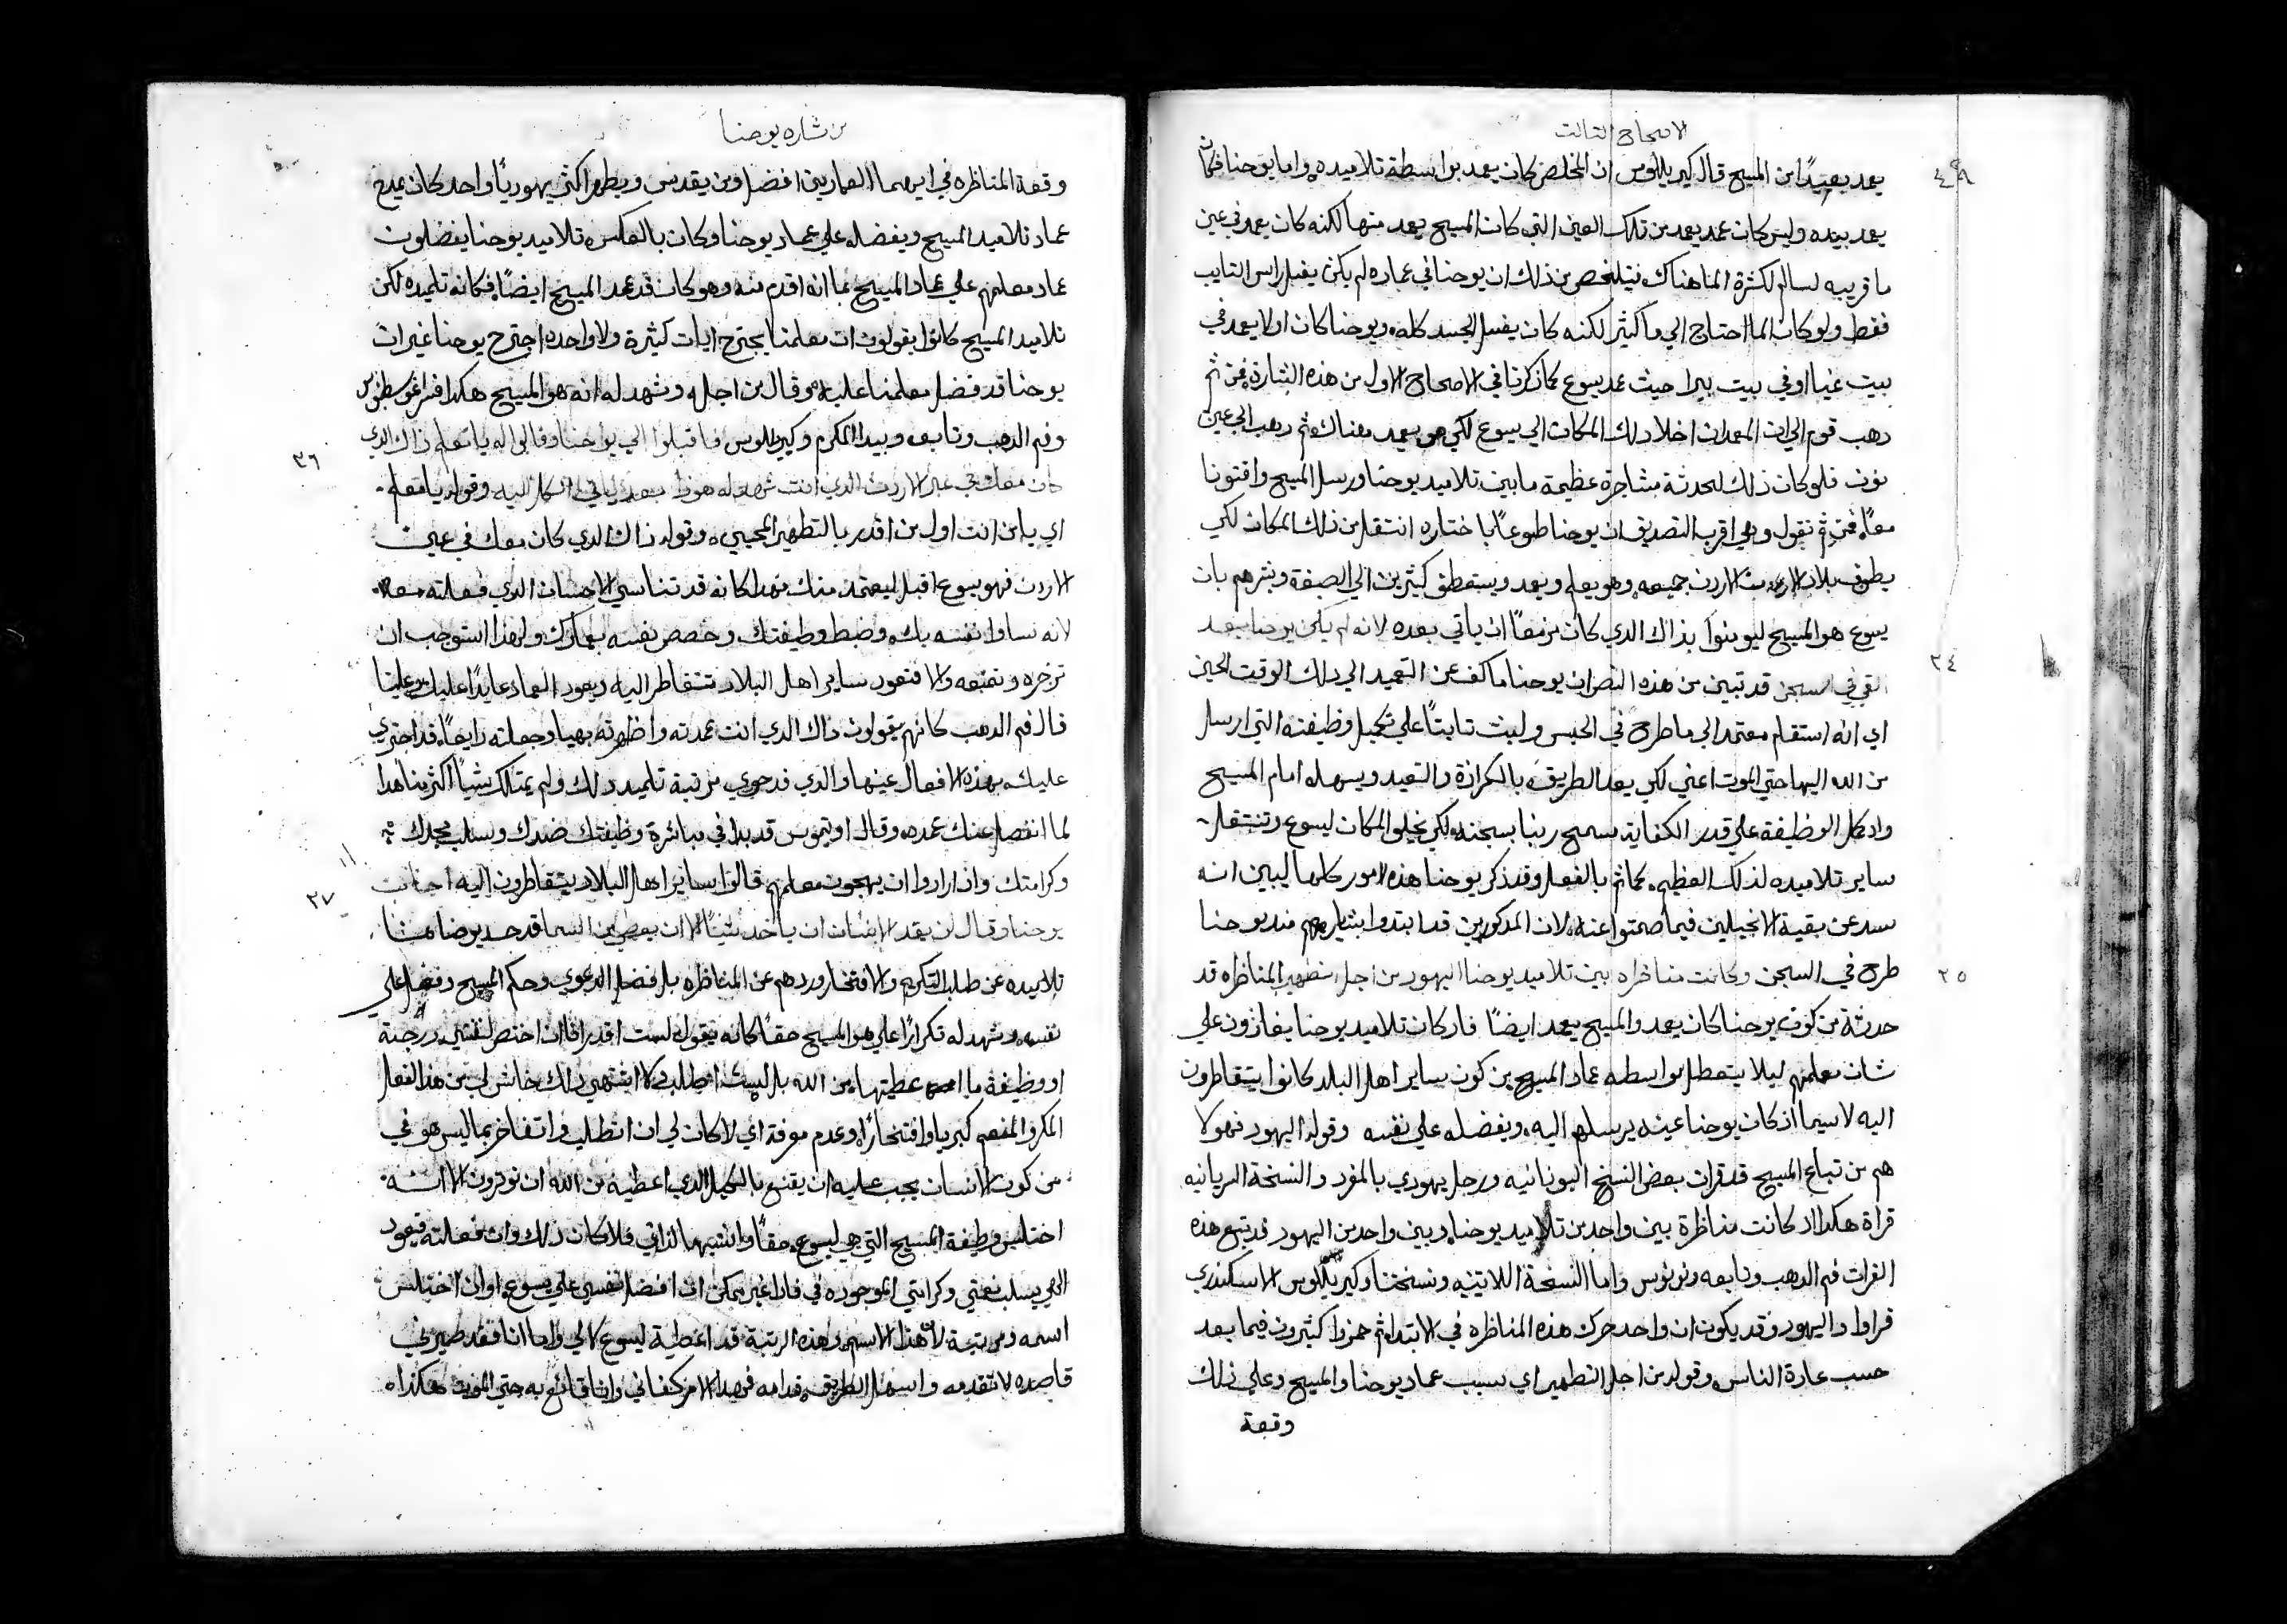 الاصحاح الثالث
٤٩
يعمد بعيدًا من المسيح قال كيرللوس ان المخلص كان يعمد بواسطة تلاميده واما يوحنا فكان
يعمد بيده وليس كان عمد يعمد من تلك العين التي كان المسيح يعمد منها لكنه كان يعمد في عين
ما قريبه لساليم لكثرة الما هناك فيتلخص من ذلك ان يوحنا في عماده لم يكن يغسل راس التايب
فقط ولو كان لما احتاج الي ما كثير لكنه كان يغسل الجسد كله ويوحنا كان اولا يعمد في
بيت عنيا او في بيت بيرا حيث عمد يسوع كما ذكرنا في الاصحاح الاول من هذه البشارة فمن ثم
دهب قوم الي ان المعمدان اخلا دلك المكان الي يسوع لكي هو يعمد هناك ثم دهب الي عين
نون فلو كان ذلك لحدثة مشاجرة عظيمة ما بين تلاميد يوحنا ورسل المسيح وافتنونا
معًا فمن ثم نقول وهي اقرب التصديق ان يوحنا طوعًا باختاره انتقل من ذلك المكان لكي
يطوف بلاد الاردن جميعه وهو يعلم ويعمد ويستعطف كثيرين الي الصبغة وينرهم بان
يسوع هو المسيح ليومنوا بذاك الدي كان مزمعًا ان ياتي بعده لانه لم يكن يوحنا بعد
٢٤
القي في السجن قد تبين من هذه النص ان يوحنا ما كف عن التعميد الي دلك الوقت الحين
اي انه استقام معتمد الي ما طرح في الحبس ولبت تابتًا علي تكميل وظيفته التي ارسل
من الله اليها حتي الموت اعني لكي يعد الطريق بالكرازة والتعميد ويسهله امام المسيح
واد كمل الوظيفة علي قدر الكفاية سمح ربنا بسجنه لكي يخلو المكان ليسوع وتنتقل
ساير تلاميده لذلك العظيم كما تم بالفعل وقد ذكر يوحنا هذه الامور كلها ليبين انه
سد عن بقية الانجيلين فيما صمتوا عنه لان المدكورين قد ابتدوا بشايرهم مند يوحنا
٢٥
طرح في السجن وكانت مناظراه بين تلاميد يوحنا اليهود من اجل تطهير المناظره قد
حدثة من كون يوحنا كان يعمد والمسيح يعمد ايضًا فاد كان تلاميد يوحنا يغازون علي
شان معلمهم ليلا يتعطل بواسطه عماد المسيح من كون ساير اهل البلد كانوا يتقاطرون
اليه لاسيما اذ كان يوحنا عينه يرسلهم اليه ويفضله علي نفسه وقوله اليهود فهولا
هم من تباع المسيح قد قرات بعض النسخ اليونانيه ورجل يهودي بالمفرد والنسخة السريانيه
قراة هكدا اد كانت مناظرة بين واحد من تلاميد يوحنا وبين واحد من اليهود قد تبع هذه
القرات فم الدهب وتابعه ونونوس واما النسخة اللاتينيه ونسختنا وكيرللوس الاسكندري
قراوا واليهود وقد يكون ان واحد حرك هذه المناظره في الابتدا ثم حمزوا كثيرون فيما بعد
حسب عادة الناس وقوله من اجل التطهير اي بسبب عماد يوحنا والمسيح وعلي ذلك
وقعة
من بشاره يوحنا
وقعة المناظره في ايهما العمادين افضل ومن يقدس ويطهر اكثر يهوديًا واحد كان يمدح
عماد تلاميد المسيح ويفضله علي عماد يوحنا وكان بالعكس تلاميد يوحنا يفضلون
عماد معلمهم علي عماد المسيح بما انه اقدم منه وهو كان قد عمد المسيح ايضًا فكانه تلميده لكن
تلاميد المسيح كانوا يقولون ان معلمنا يجترح ايات كثيرة ولا واحده اجترح يوحنا غير ان
يوحنا قد فضل معلمنا عليه وقال من اجله وشهد له انه هو المسيح هكدا فسر اغوسطينوس
وفم الدهب وتابعه وبيدا المكرم وكيرللوس فاقبلوا الي يوحنا وقالوا له يا معلم ذاك الدي
٣٦
كان معك في عبر الاردن الدي انت شهدت له هودا يعمد وياتي الكل اليه وقوله يا معلم
اي يا من انت اول من اقدر بالتطهير العجيب وقوله ذاك الدي كان معك في عين
الاردن فهو يسوع اقبل ليعتمد منك فهدا كانه قد تناسي الاحسان الدي فعلته معه
لانه ساوا نفسه بك وضبط وظيفتك وخصص نفسه بعمادك ولهدا استوجب ان
تزجره وتمنعه والا فتعود ساير اهل البلاد تتقاطر اليه ويعود العماد عايدًا عليك وعلينا
قال فم الدهب كانهم يقولون ذاك الدي انت عمدته واظهرته بهيا وجعلته رايعًا قد اجتري
عليك بهذه الافعال عينها والدي قد حوي مرتبة تلميد دلك ولم يمتلك شيًا اكثر منا هدا
لما انفصل عنك عمده وقال اوتيموس قد بدا في مباشرة وظيفتك ضدك ويسلب مجدك
وكرامتك وان ارادوا ان يهيجون معلمهم قالوا ساير اهل البلاد يتقاطرون اليه اجاب
٢٧
يوحنا وقال لن يقدر الانسان ان ياخد شيًا الا ان يعطي من السما قد حد يوحنا
تلاميده عن طلب التكريم والافتخار وردهم عن المناظره بل فصل الدعوي وحكم المسيح وفضله علي
نفسه وشهد له تكرارًا علي هو المسيح حقًا كانه يقول لست اقدر انا ان اختص لنفسي درجة
او وظيفة ما عطيتها من الله بل ليست اطلب ولا اشتهي دلك حاش لي من هذا الفعل
المكر والمفعم كبريا وافتخارًا وعدم معرفة اي لا كان لي ان اتطلب واتفاخر بما ليس هو في
من كون الانسان يجب عليه ان يقنع بالكيل الدي اعطيه من الله ان نوثرون الا اننه
اختلس وظيفة المسيح التي هي ليسوع حقًا وانسبها لداتي فلا كان ذلك وان فعلته فيعود
الهي يسلب نعمتي وكرامتي الموجوده في فادًا غير ممكن ان افضل نفسي علي يسوع او ان اختلس
اسمه ومرتبته لان هذا الاسم وهذه الرتبة قد اعطية ليسوع لا لي واما انا فقد صيرني
قاصده لاتقدمه واسهل الطريق قدامه فهدا الامر كفاني وانا قانع به حتي الموت هكذا